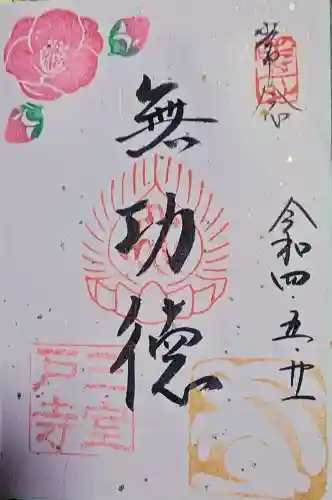 無功徳
令和四・五・廿一
三室
戸寺